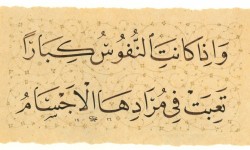 وَإِذَا كَانَتِ النُّفُوسُ كِبَارًا
تَعِبَتْ فِي مُرَادِهَا الْأَجْسَامُ